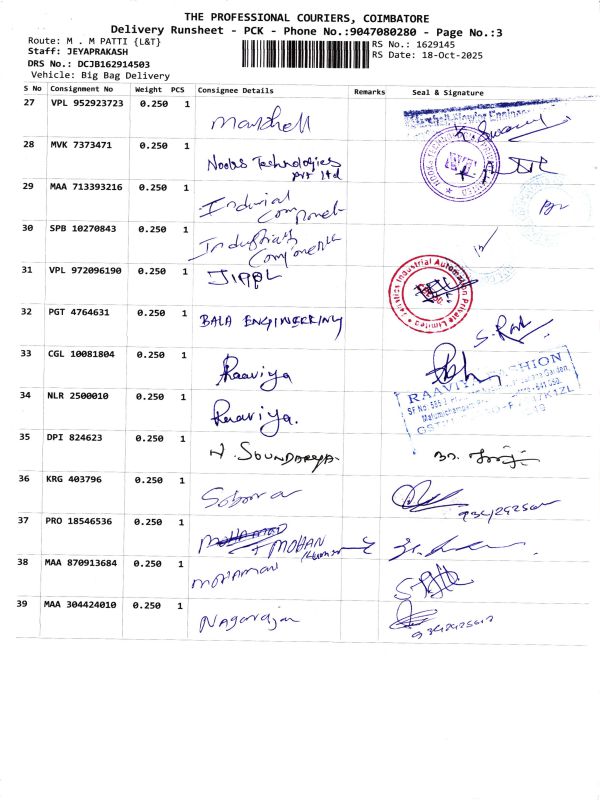 THE PROFESSIONAL COURIERS, COIMBATORE
Delivery Runsheet - PCK - Phone No.:9047080280 - Page No.:3
Route: M . M PATTI {L&T}
RS No.: 1629145
Staff: JEYAPRAKASH
RS Date: 18-Oct-2025
DRS No.: DCJB162914503
Vehicle: Big Bag Delivery
S No Consignment No Weight PCS Consignee Details Remarks Seal & Signature
27 VPL 952923723 0.250 1 Marshell
28 MVK 7373471 0.250 1 Noobs Technologies
Pvt ltd
29 MAA 713393216 0.250 1
30 SPB 10270843 0.250 1
31 VPL 972096190 0.250 1 JIPPL
Industrial Automation Private Limited
32 PGT 4764631 0.250 1 BALA ENGINEERING
33 CGL 10081804 0.250 1 Raaviya
34 NLR 2500010 0.250 1 Raaviya.
RAAVIYA FASHION
35 DPI 824623 0.250 1 N. SOUNDARYA
36 KRG 403796 0.250 1
37 PRO 18546536 0.250 1 MOHAN
38 MAA 870913684 0.250 1
39 MAA 304424010 0.250 1 Nagarajan